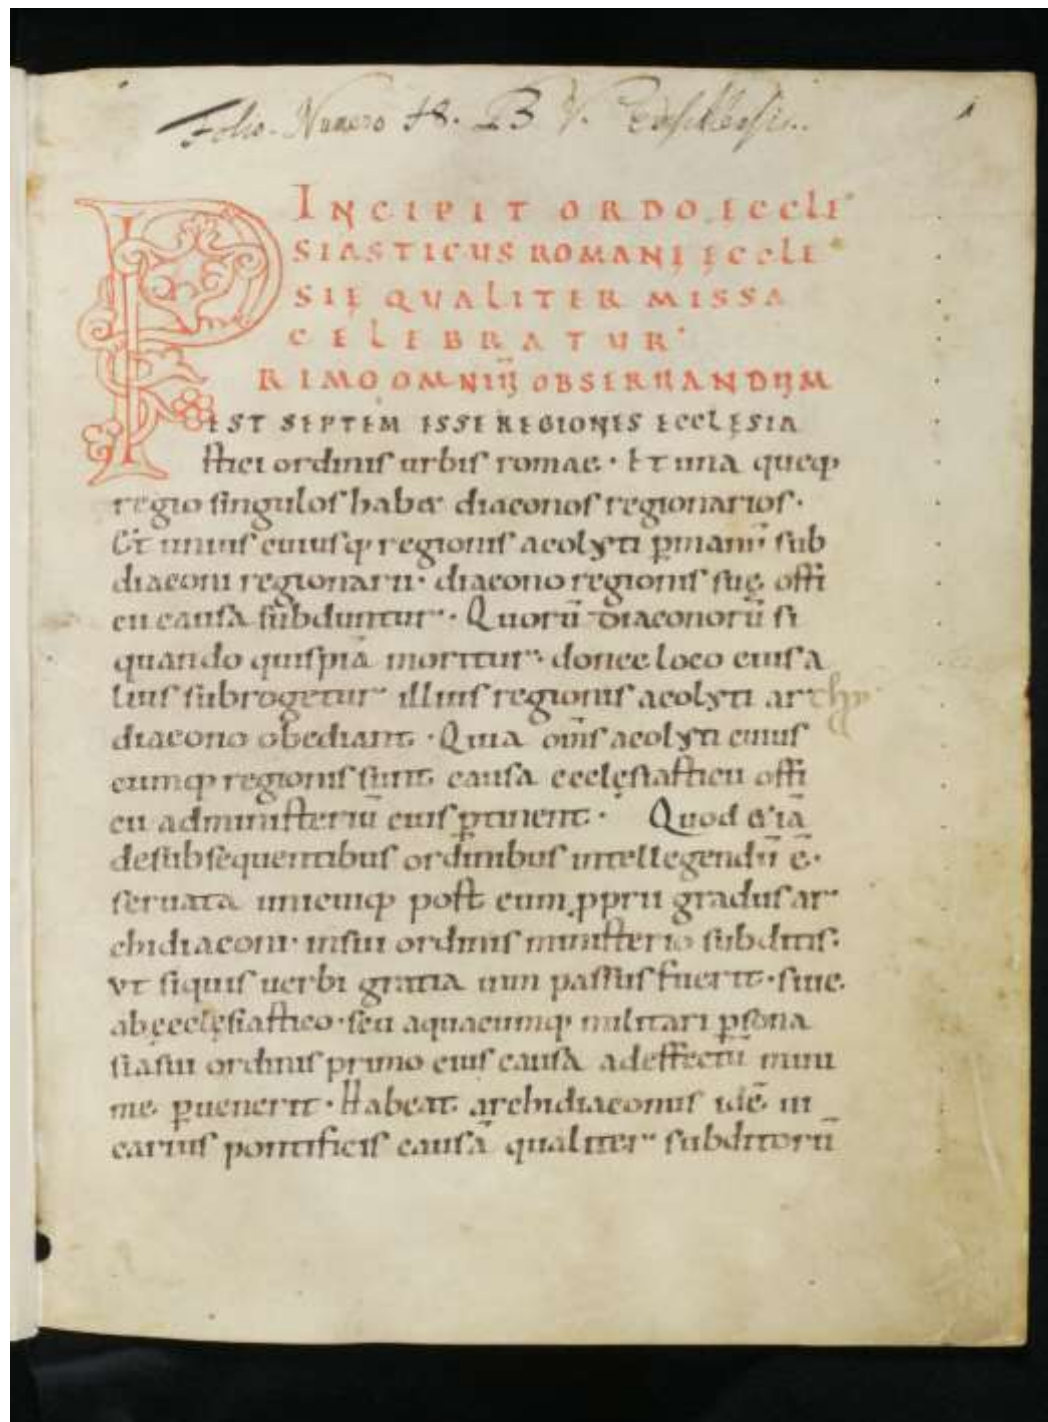 Folio. Numero 48. B V.
1
INCIPIT ORDO ECCLE
SIASTICUS ROMANĘ ĘCCLE
SIĘ QVALITER MISSA
CELEBRATUR
PRIMO OMNIŪ OBSERUANDUM
EST SEPTEM ESSE REGIONES ECCLĘSIA
stici ordinis urbis romae · Et una queq;
regio singulos habet diaconos regionarios ·
Et unius cuiusq; regionis acolyti p̱manū sub
diaconi regionarii · diacono regionis suę offi
cii causa subduntur · Quorū diaconorū si
quando quispiā moritur · donec loco eius a
lius subrogetur illius regionis acolyti archy
diacono obediant · Quia om̄s acolyti cuius
cumq; regionis sunt causa ecclęsiastici offi
cii administeriū eius p̱tinent · Quod etiā
desubsequentibus ordinibus intellegendū ē ·
seruata unicuiq; post eum p̱prii gradus ar
chidiaconi insui ordinis ministerio subditis ·
vt siquis uerbi gratia uim passus fuerit · siue
abęcclęsiastico · seu aquacumq; militari p̱sona
siasui ordinis primo eius causa adeffectū mini
me p̱uenerit · Habeat archidiaconus idē ui
carius pontificis causā qualiter subditorū